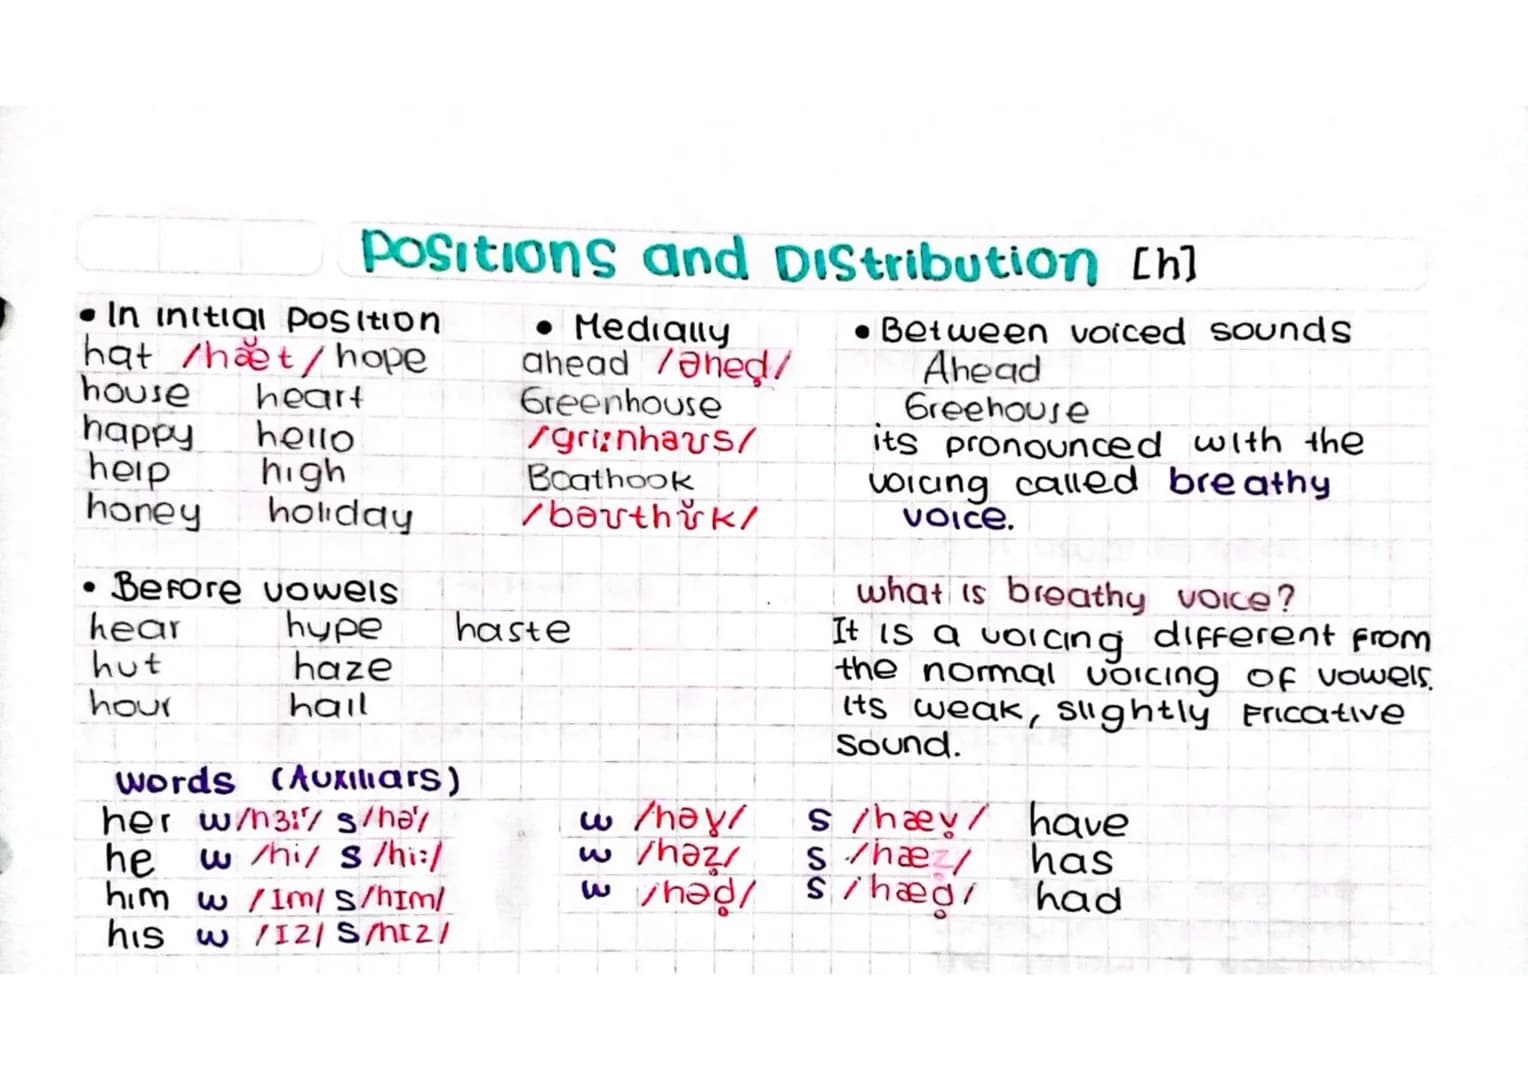 Positions and Distribution [h]
• In initial position
hat /hæ̆t/ hope
house heart
happy hello
help high
honey holiday
• Medially
ahead /əhed̥/
Greenhouse
/griːnhaʊs/
Boathook
/bəʊthʊ̆k/
• Between voiced sounds
Ahead
Greehouse
its pronounced with the
voicing called breathy
voice.
• Before vowels
hear hype haste
hut haze
hour hail
what is breathy voice?
It is a voicing different from
the normal voicing of vowels.
Its weak, slightly fricative
sound.
words (Auxiliars)
her w/hɜːʳ/ s/həʳ/
he w /hi/ s /hiː/
him w /ɪm/ s/hɪm/
his w /ɪz/ s/hɪz/
w /həv̥/ s /hæv̥/ have
w /həz̥/ s /hæz/ has
w /həd̥/ s /hæd̥/ had